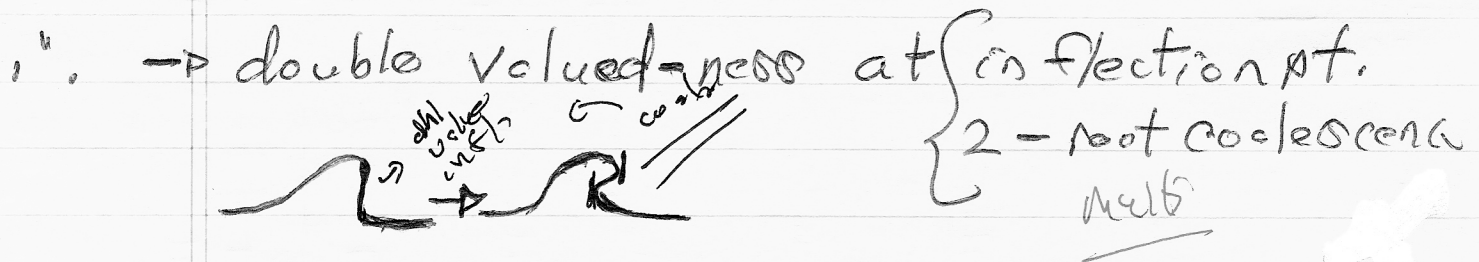 ∴ → double valued-ness at { inflection pt.
2-root coalescence
dbl value infl.
Multi